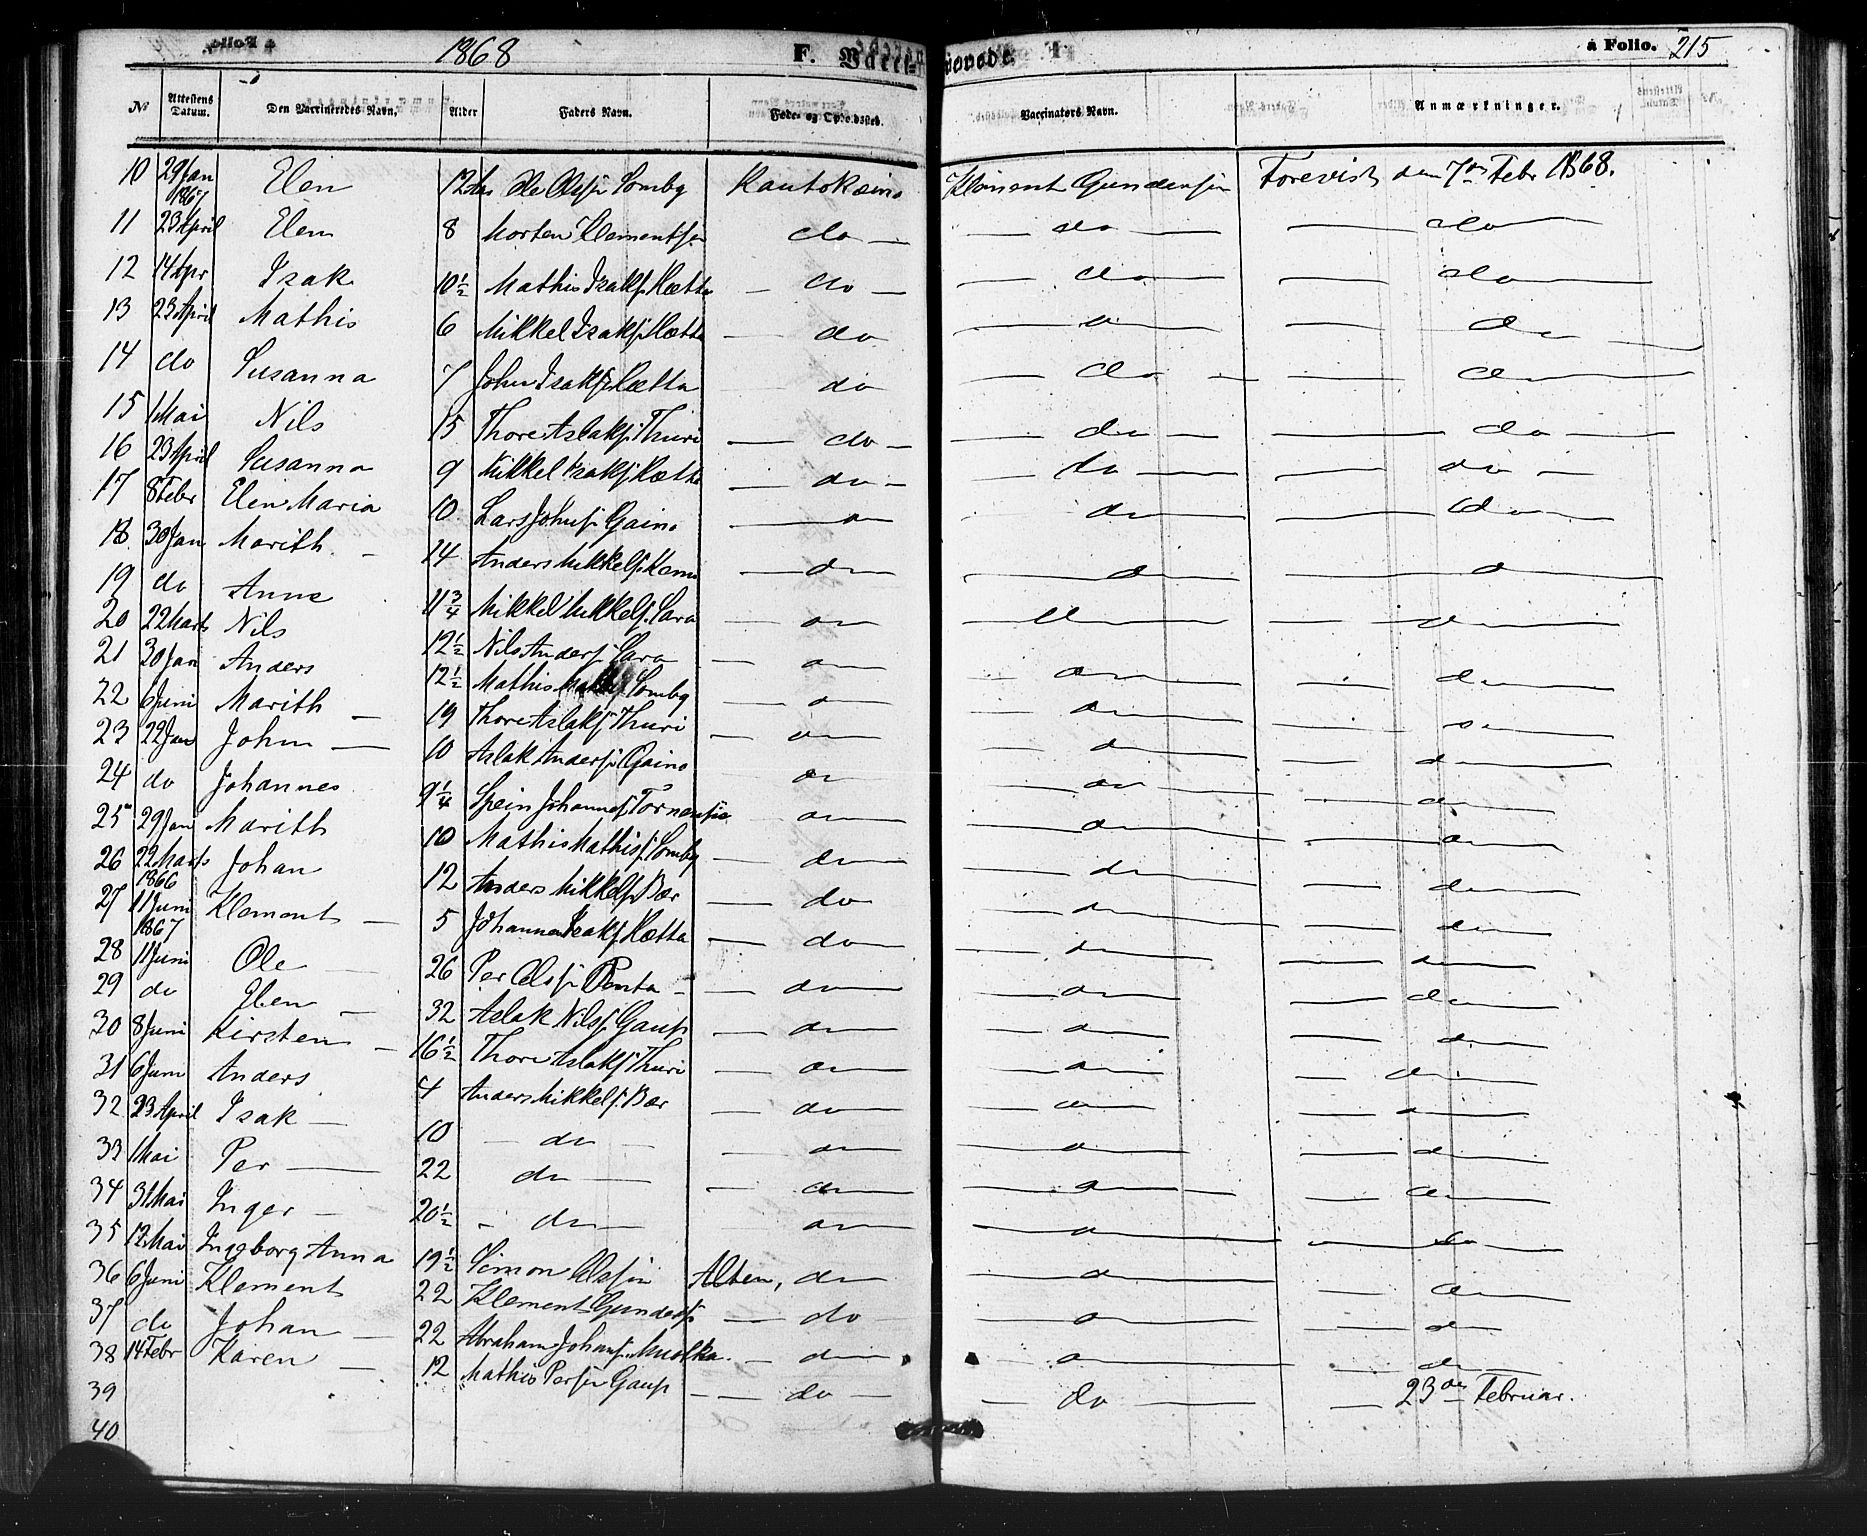 1868 F. Vacci- novede. à Folio. 215
№ Attestens Datum. Den Vaccineredes Navn. Alder Faders Navn. Føde- og Opholdssted. Vaccinators Navn. Anmærkninger.
10 29 Jan 1867 Elen 12 Ole Olss Somby Kautokeino Klement Gundersen Forevist den 7de Febr 1868.
11 23 April Elen 8 Morten Klements. — do — — do — — do —
12 14 Apr Isak 10½ Mathis Isaks. Hætta — do — — do — — do —
13 23 April Mathis 6 Mikkel Isaks. Hætta — do — do — — do —
14 do Susanna 7 John Isaks. Hætta do — do — — do —
15 1 Mai Nils 15 Thore Aslaks. Thuri — do — — do — — do —
16 23 April Susanna 9 Mikkel Isaks. Hætta — do — — do — — do —
17 8 Febr Elen Maria 10 Lars Johns. Gaino — do — do — — do —
18 30 Jan Marith — 14 Anders Mikkels. — do — — do — — do —
19 do Anne 11¾ Mikkel Mikkels. Sara — do — — do — — do —
20 22 Marts Nils 12½ Nils Anders. Sara — do — — do — — do —
21 30 Jan Anders 12½ Mathis Somby — do — — do — — do —
22 6 Juni Marith — 19 Thore Aslaks. Thuri — do — — do — — do —
23 22 Jan John — 10 Aslak Anders. Gaino do — — do — — do —
24 do Johannes 9¼ Spein Johannes. Tornensis — do — — do — — do —
25 29 Jan Marith 10 Mathis Mathis. Somby — do — — do — — do —
26 22 Marts 1866 Johan 12 Anders Mikkels. Bær — do — do — — do —
27 11 Juni 1867 Klement — 5 Johannes Isaks. Hætta — do — — do — — do —
28 11 Juni Ole — 26 Per Olss. — do — — do — — do —
29 do Elen — 32 Aslak Nils. Gaup — do — — do — — do —
30 8 Juni Kirsten — 16½ Thore Aslaks. Thuri — do — — do — — do —
31 6 Juni Anders 4 Anders Mikkels. Bær — do — — do — — do —
32 23 April Isak — 10 — do — — do — — do — — do —
33 1 Mai Per — 22 do — — do — — do — — do —
34 31 Mai Inger — 20½ — do — do — — do — — do —
35 12 Mai Ingeborg Anna 19½ Simon Olssen Alten, do — — do — — do —
36 6 Juni Klement 22 Klement Gunders. — do — — do — — do —
37 do Johan — 22 Abraham Johans. — do — — do — — do —
38 14 Febr Karen — 12 Mathis Persen Gaup — do — — do — — 23de Februar.
39
40